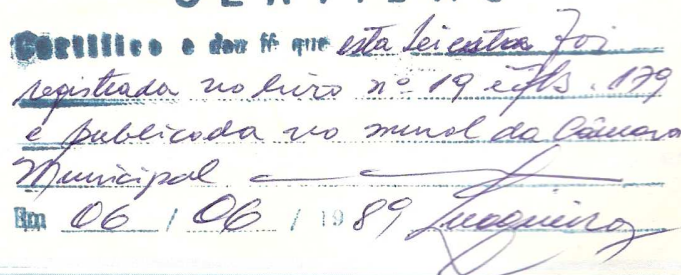 CERTIDÃO
Certifico e dou fé que esta Lei extra foi
registrada no livro nº 19 e fls. 179
e publicada no mural da Câmara
Municipal
Em 06 / 06 / 1989